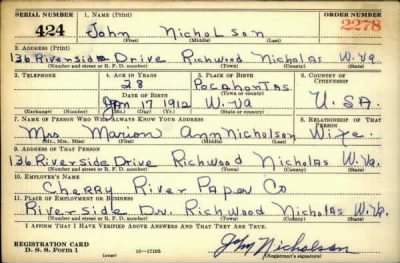 SERIAL NUMBER
1. NAME (Print)
ORDER NUMBER
424
John Nicholson
2278
(First) (Middle) (Last)
2. ADDRESS (Print)
136 Riverside Drive Richwood Nicholas W.Va
(Number and street or R. F. D. number) (Town) (County) (State)
3. TELEPHONE
4. AGE IN YEARS
5. PLACE OF BIRTH
6. COUNTRY OF CITIZENSHIP
28
Pocahontas
(Town or county)
DATE OF BIRTH
Jan 17 1912
W.Va
U.S.A.
(Exchange) (Number)
(Mo.) (Day) (Yr.)
(State or country)
7. NAME OF PERSON WHO WILL ALWAYS KNOW YOUR ADDRESS
8. RELATIONSHIP OF THAT PERSON
Mrs Marion Ann Nicholson Wife.
(Mr., Mrs., Miss) (First) (Middle) (Last)
9. ADDRESS OF THAT PERSON
136 Riverside Drive Richwood Nicholas W.Va.
(Number and street or R. F. D. number) (Town) (County) (State)
10. EMPLOYER'S NAME
Cherry River Paper Co
11. PLACE OF EMPLOYMENT OR BUSINESS
Riverside Dr. Richwood Nicholas W.Va.
(Number and street or R. F. D. number) (Town) (County) (State)
I AFFIRM THAT I HAVE VERIFIED ABOVE ANSWERS AND THAT THEY ARE TRUE.
REGISTRATION CARD
D. S. S. Form 1
16—17105
John Nicholson
(Registrant's signature)